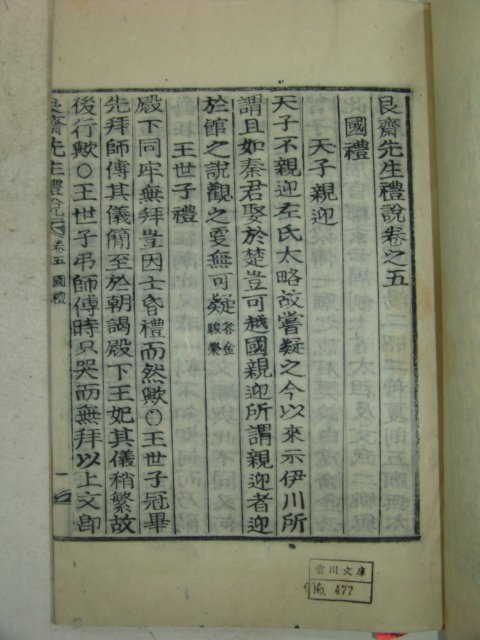 艮齋先生禮說卷之五
國禮
天子親迎
天子不親迎左氏太略故嘗疑之今以來示伊川所
謂且如秦君娶於楚豈可越國親迎所謂親迎者迎
於館之說觀之更無可疑答金駿榮
王世子禮
殿下同牢無拜豈因士昏禮而然歟○王世子冠畢
先拜師傅其儀簡至於朝謁殿下王妃其儀稍繁故
後行歟○王世子弔師傅時只哭而無拜以上文卽
艮齋先生禮說 卷五 國禮 一
雲川文庫
No. 477